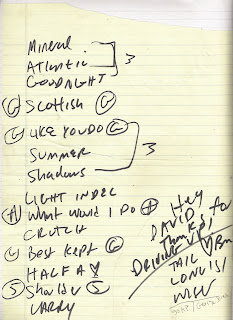 Mineral
Atlantic
3
GOODNIGHT
G Scottish G
G LIKE YOU DO G
SUMMER
3
Shadows
LIGHT INDEL
A What Would I Do A
CRUTCH
G Best Kept G
HALF A
S Shoulder S
LARRY
Hey
DAVID
Thanks for
DRIVING US!
TAIL
LONG IS!